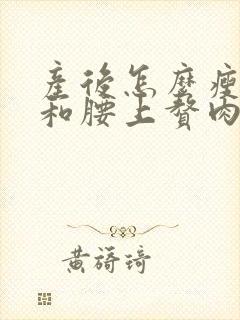 產後怎麼瘦
和腰上贅肉
黃蒻琦